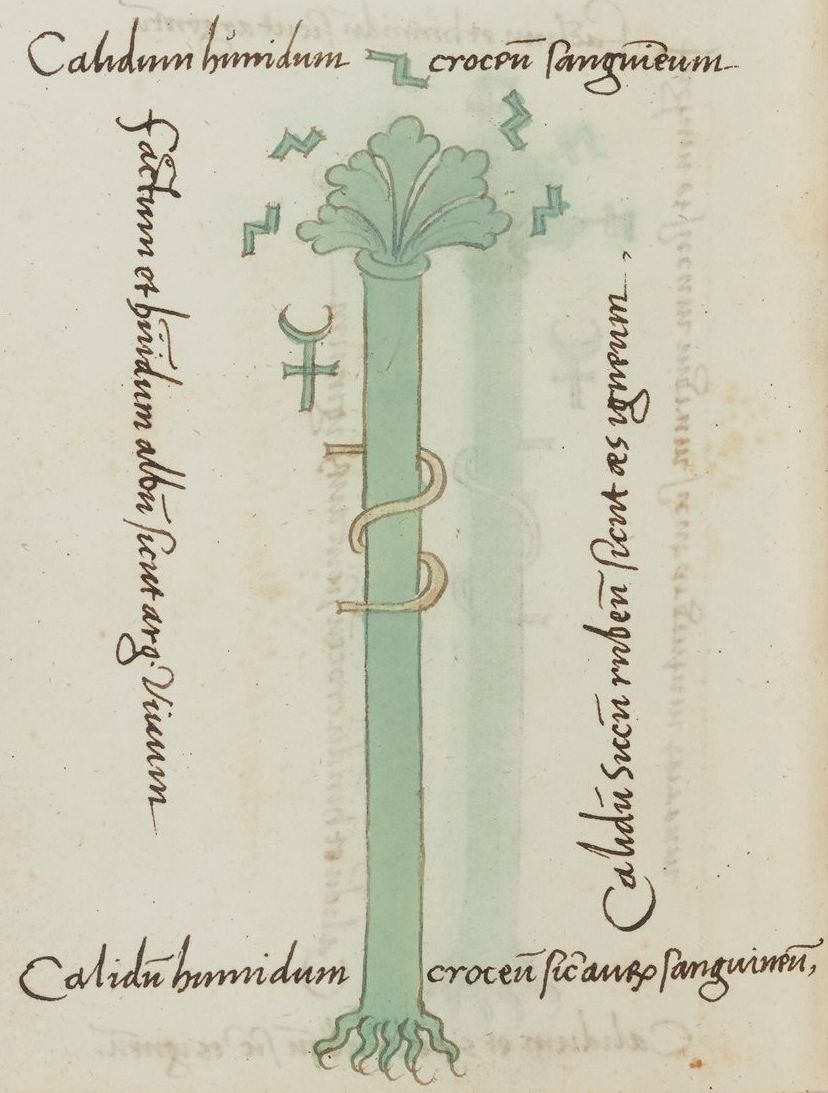 Calidum humidum croceū sanguīeum
factum et hūidum albū sicut arg. Viuum
Calidū Siccū rubeū sicut æs igneum,
Calidū humidum croceū sic̄ auꝝ sanguineū,